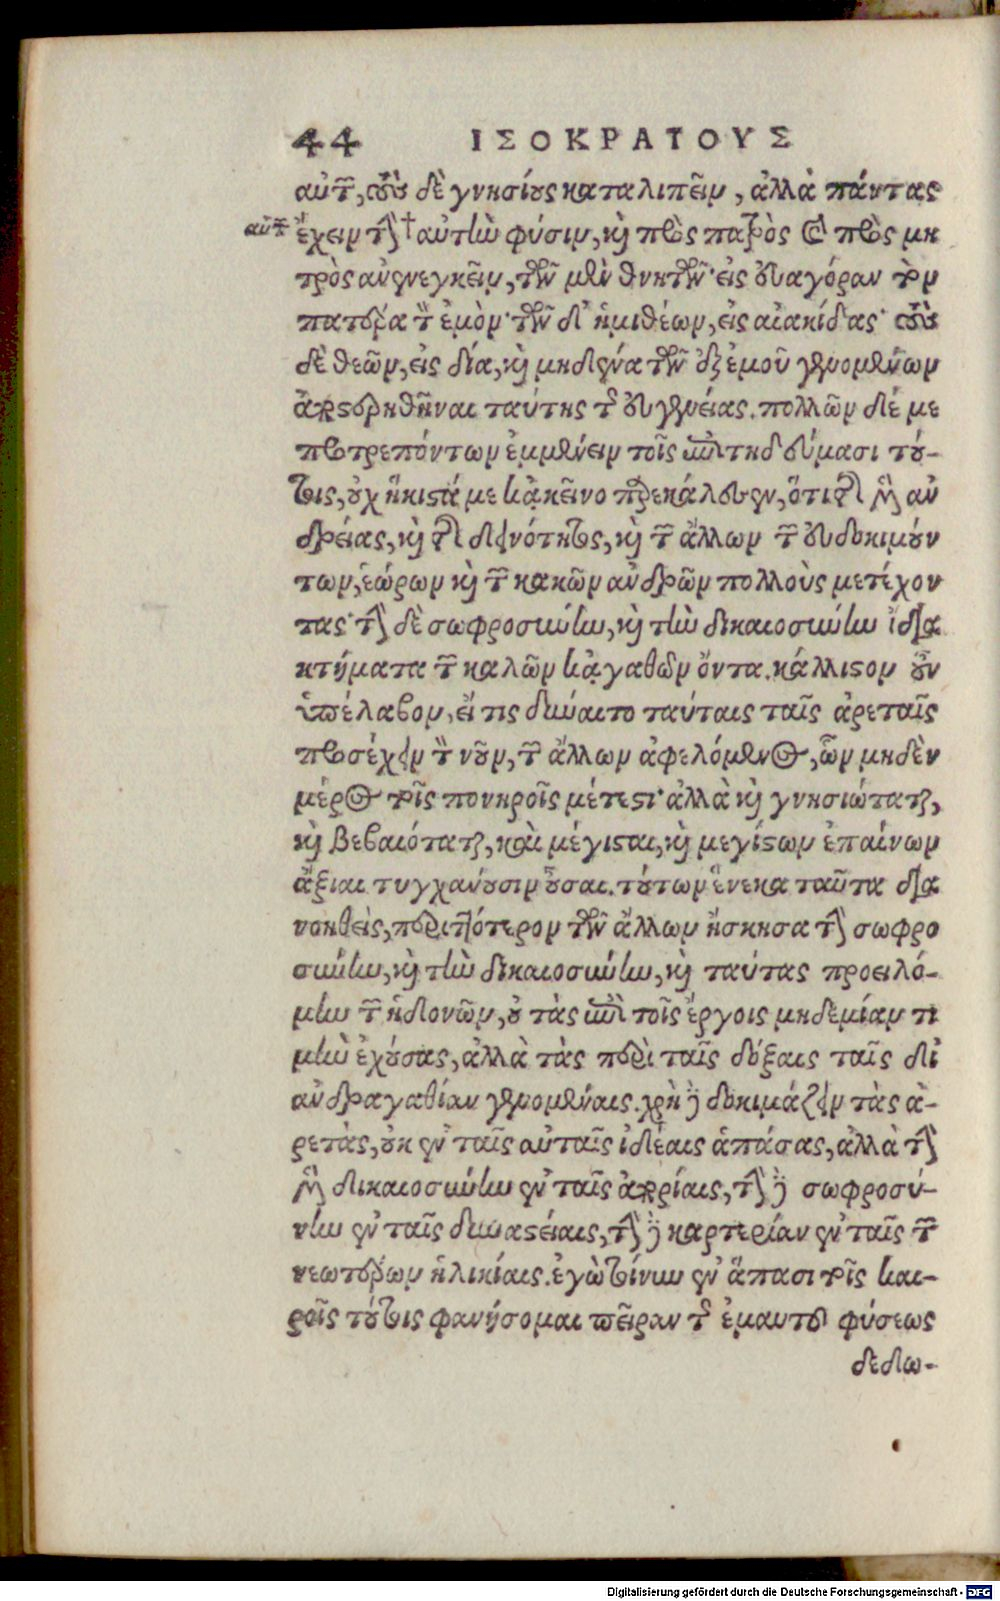 44 ΙΣΟΚΡΑΤΟΥΣ
αὐτῶν, τοὺς δὲ γνησίους καταλιπεῖν, ἀλλὰ πάντας
αὐτῶν ἔχειν τὴν † αὐτὴν φύσιν, καὶ πρὸς πατρὸς καὶ πρὸς μη
τρὸς ἀνενεγκεῖν, τῶν μὲν θνητῶν· εἰς εὐαγόραν τὸν
πατέρα τὸν ἐμὸν· τῶν δ' ἡμιθέων, εἰς αἰακίδας· τοὺς
δὲ θεῶν, εἰς δία, καὶ μηδένα τῶν ἐξ ἐμοῦ γενομένων
ἀποστερηθῆναι ταύτης τῆς εὐγενείας. πολλῶν δέ με
προτρεπόντων ἐμμένειν τοῖς ἐπιτηδεύμασι τού-
τοις, οὐχ ἥκιστά με κἀκεῖνο παρεκάλεσεν, ὅτι τῆς μὲν ἀν
δρείας, καὶ τῆς δεινότητος, καὶ τῶν ἄλλων τῶν εὐδοκιμούν
των, ἑώρων καὶ τῶν κακῶν ἀνδρῶν πολλοὺς μετέχον
τας· τὴν δὲ σωφροσύνην, καὶ τὴν δικαιοσύνην ἴδια
κτήματα τῶν καλῶν κἀγαθῶν ὄντα. κάλλιστον οὖν
ὑπέλαβον, εἴ τις δύναιτο ταύταις ταῖς ἀρεταῖς
προσέχειν τὸν νοῦν, τῶν ἄλλων ἀφελόμενος, ὧν μηδὲν
μέρος τοῖς πονηροῖς μέτεστι· ἀλλὰ καὶ γνησιώταται,
καὶ βεβαιόταται, καὶ μέγισται, καὶ μεγίστων ἐπαίνων
ἄξιαι τυγχάνουσιν οὖσαι. τούτων ἕνεκα ταῦτα δια
νοηθεὶς, περιττότερον τῶν ἄλλων ἤσκησα τὴν σωφρο
σύνην, καὶ τὴν δικαιοσύνην, καὶ ταύτας προειλό-
μην τῶν ἡδονῶν, οὐ τὰς ἐπὶ τοῖς ἔργοις μηδεμίαν τι
μὴν ἐχούσας, ἀλλὰ τὰς περὶ ταῖς δόξαις ταῖς δι'
ἀνδραγαθίαν γενομέναις. χρὴ δὲ δοκιμάζειν τὰς ἀ-
ρετὰς, οὐκ ἐν ταῖς αὐταῖς ἰδέαις ἁπάσας, ἀλλὰ τὴν
μὲν δικαιοσύνην ἐν ταῖς ἀπορίαις, τὴν δὲ σωφροσύ-
νην ἐν ταῖς δυναστείαις, τὴν δὲ καρτερίαν ἐν ταῖς τῶν
νεωτέρων ἡλικίαις. ἐγὼ τοίνυν ἐν ἅπασι τοῖς και-
ροῖς τούτοις φανήσομαι πεῖραν τῆς ἐμαυτοῦ φύσεως
δεδω-
Digitalisierung gefördert durch die Deutsche Forschungsgemeinschaft - DFG